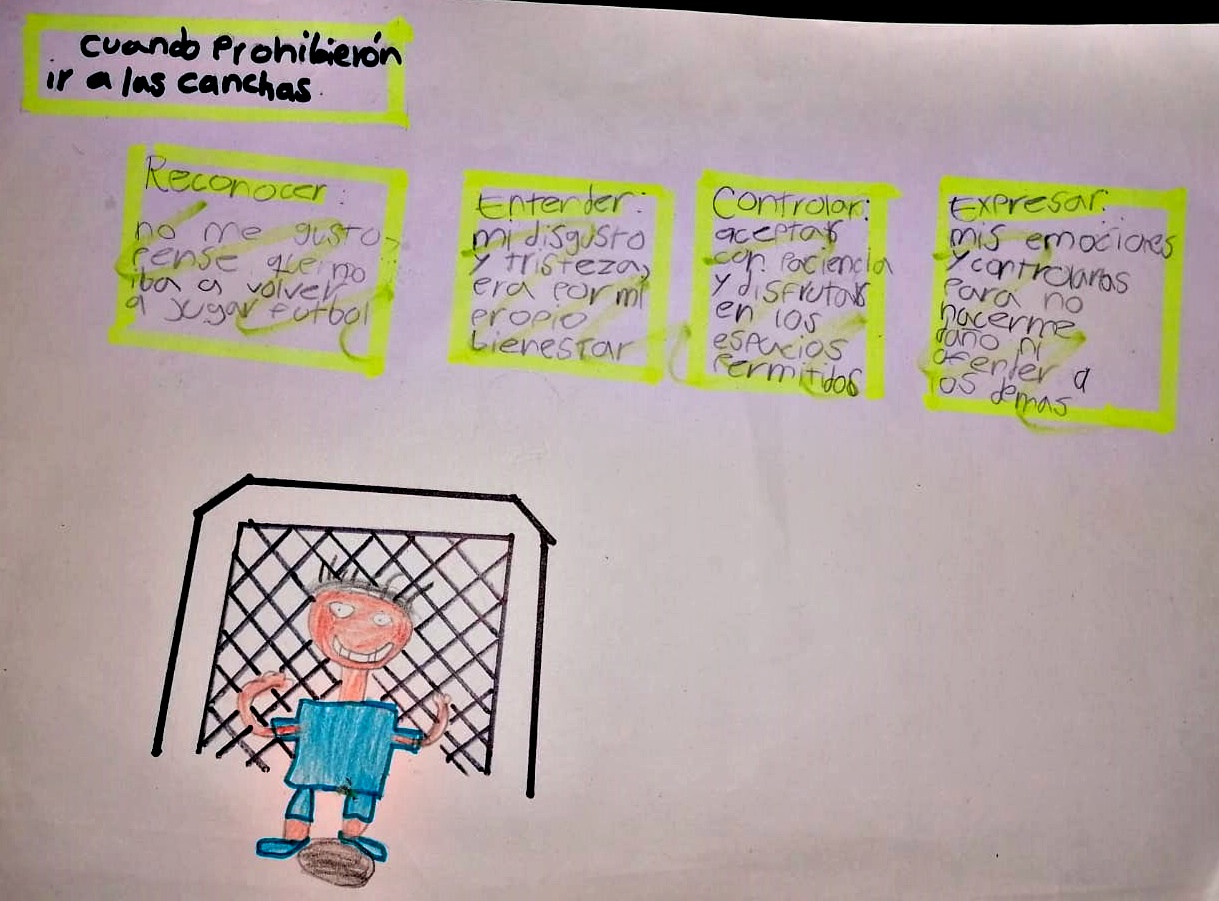 cuando Prohibierón
ir a las canchas.
Reconocer:
no me gusto,
pense que no
iba a volver
a jugar futbol
Entender:
mi disgusto
y tristeza,
era por mi
propio
bienestar
Controlar:
aceptar
con paciencia
y disfrutar
en los
espacios
Permitidos
Expresar:
mis emociones
y controlarlas
para no
hacerme
daño ni
ofender a
los demas